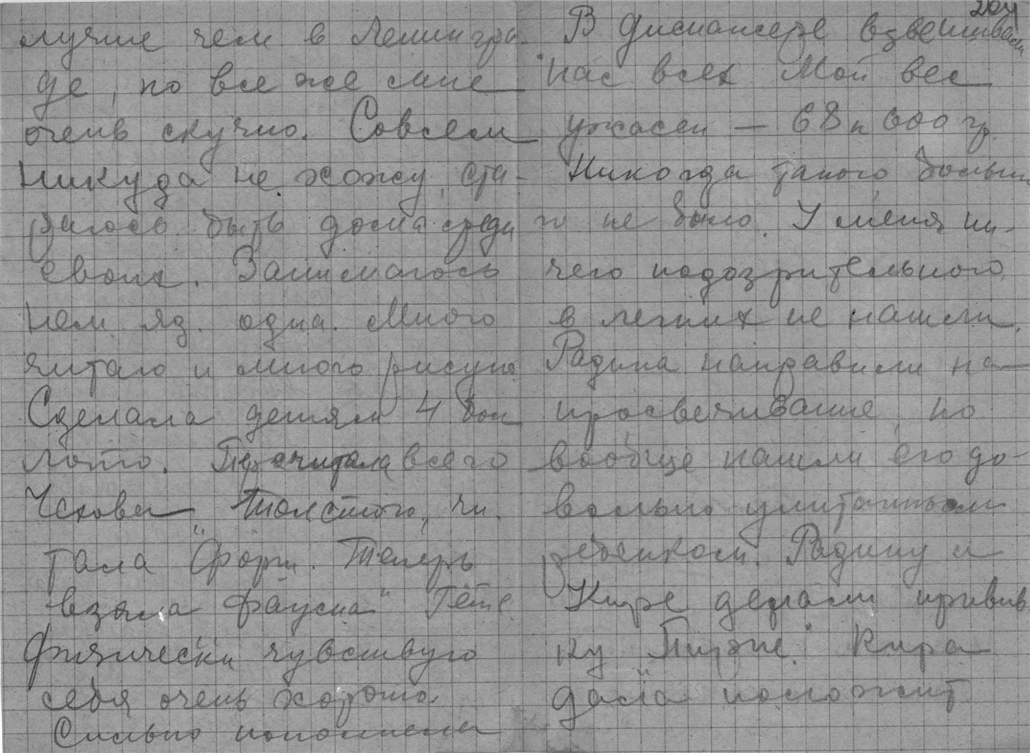 лучше чем в Ленингра-
де, но все же мне
очень скучно. Совсем
никуда не хожу, ста-
раюсь быть дома среди
своих. Занимаюсь
нем. яз. одна. Много
читаю и много рисую
Сделала детям 4
лото. Перечитала всего
Чехова, Толстого, чи-
тала
взяла "Фауста" Гёте
Физически чувствую
себя очень хорошо.
Сильно пополнела
204
В диспансере взвешивали
нас всех Мой вес
ужасен — 68 к 600 гр.
Никогда такого больш
го не было. У меня ни-
чего подозрительного
в легких не нашли,
Радика направили на
просвечивание, но
вообще нашли его до-
вольно упитанным
ребенком. Радику и
Кире делали привив
ку "Пирке." Кира
дала положит